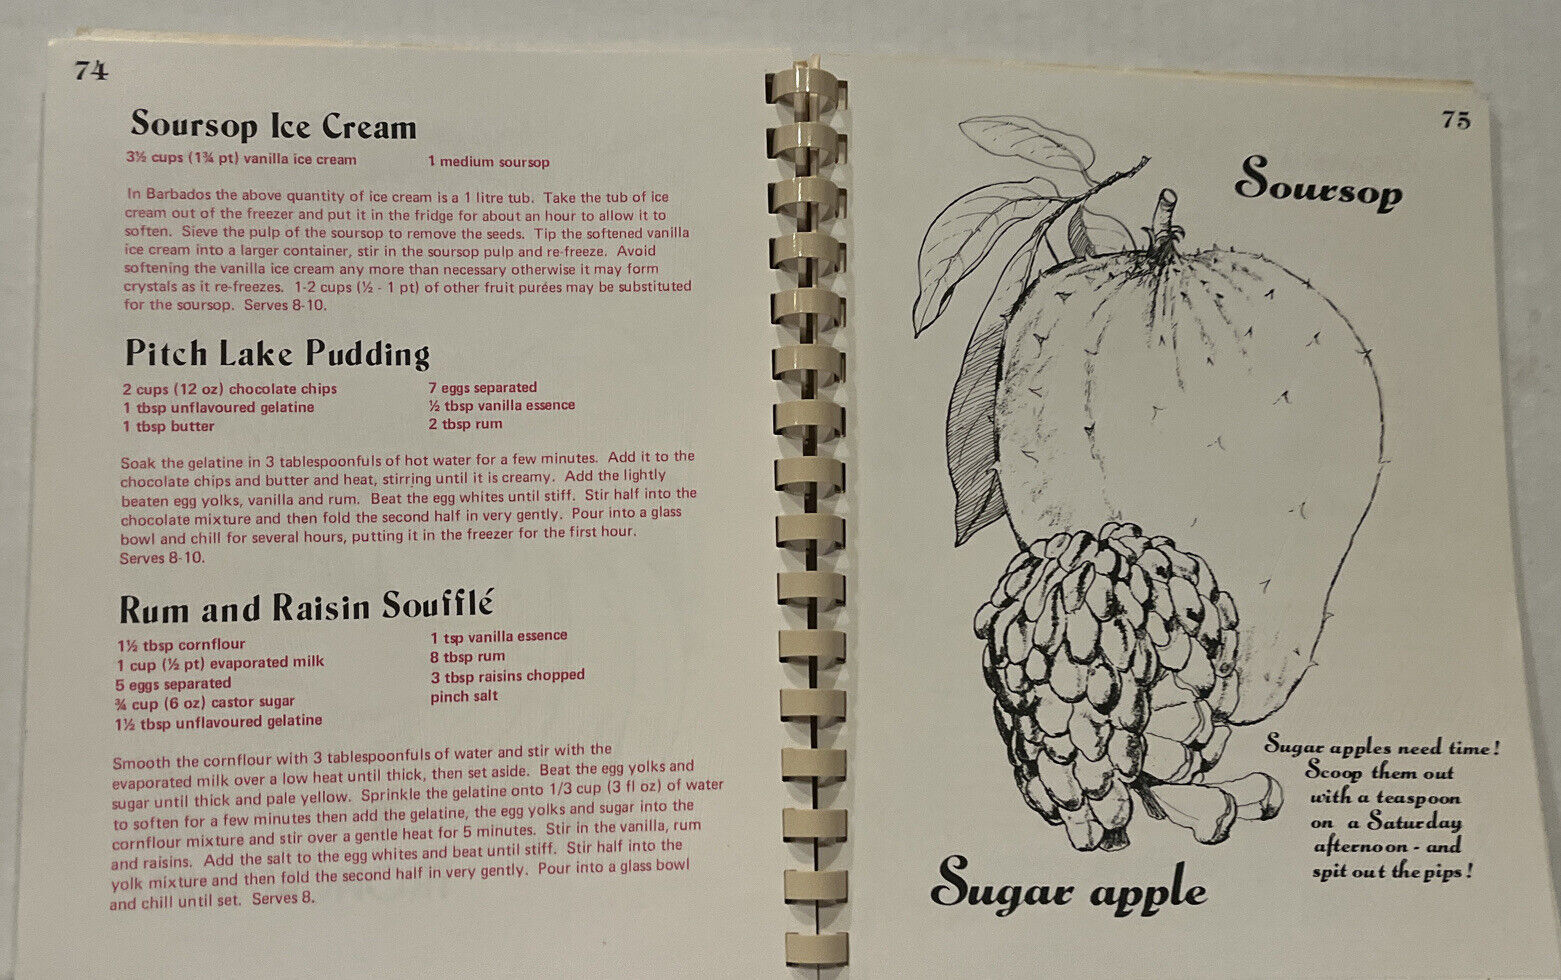 74
Soursop Ice Cream
3½ cups (1¾ pt) vanilla ice cream
1 medium soursop
In Barbados the above quantity of ice cream is a 1 litre tub. Take the tub of ice
cream out of the freezer and put it in the fridge for about an hour to allow it to
soften. Sieve the pulp of the soursop to remove the seeds. Tip the softened vanilla
ice cream into a larger container, stir in the soursop pulp and re-freeze. Avoid
softening the vanilla ice cream any more than necessary otherwise it may form
crystals as it re-freezes. 1-2 cups (½ - 1 pt) of other fruit purées may be substituted
for the soursop. Serves 8-10.
Pitch Lake Pudding
2 cups (12 oz) chocolate chips
1 tbsp unflavoured gelatine
1 tbsp butter
7 eggs separated
½ tbsp vanilla essence
2 tbsp rum
Soak the gelatine in 3 tablespoonfuls of hot water for a few minutes. Add it to the
chocolate chips and butter and heat, stirring until it is creamy. Add the lightly
beaten egg yolks, vanilla and rum. Beat the egg whites until stiff. Stir half into the
chocolate mixture and then fold the second half in very gently. Pour into a glass
bowl and chill for several hours, putting it in the freezer for the first hour.
Serves 8-10.
Rum and Raisin Soufflé
1½ tbsp cornflour
1 cup (½ pt) evaporated milk
5 eggs separated
¾ cup (6 oz) castor sugar
1½ tbsp unflavoured gelatine
1 tsp vanilla essence
8 tbsp rum
3 tbsp raisins chopped
pinch salt
Smooth the cornflour with 3 tablespoonfuls of water and stir with the
evaporated milk over a low heat until thick, then set aside. Beat the egg yolks and
sugar until thick and pale yellow. Sprinkle the gelatine onto 1/3 cup (3 fl oz) of water
to soften for a few minutes then add the gelatine, the egg yolks and sugar into the
cornflour mixture and stir over a gentle heat for 5 minutes. Stir in the vanilla, rum
and raisins. Add the salt to the egg whites and beat until stiff. Stir half into the
yolk mixture and then fold the second half in very gently. Pour into a glass bowl
and chill until set. Serves 8.
75
Soursop
Sugar apples need time!
Scoop them out
with a teaspoon
on a Saturday
afternoon - and
spit out the pips!
Sugar apple